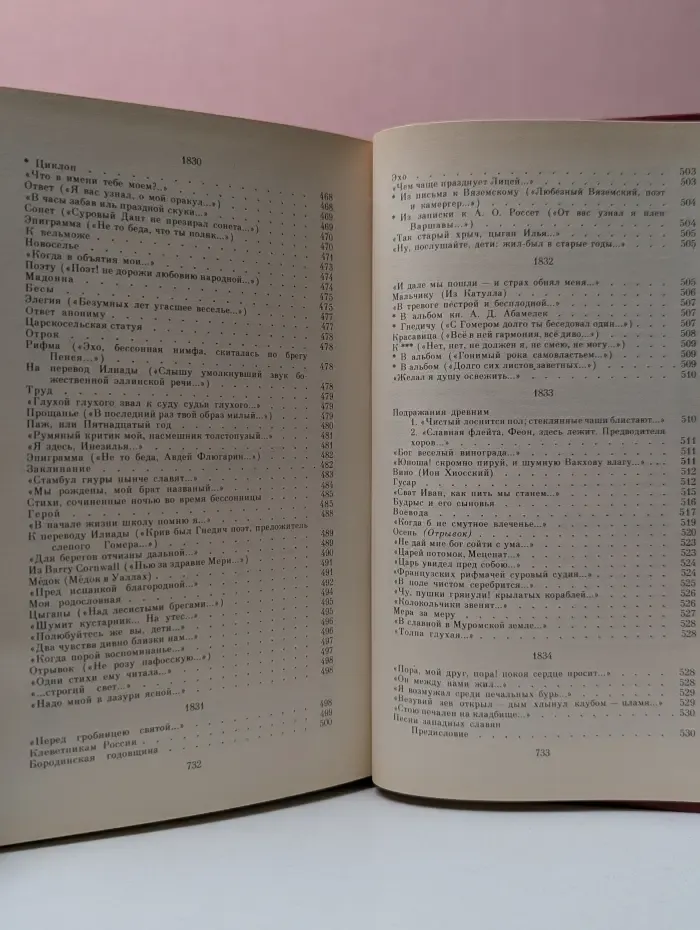 1830
* Циклоп
«Что в имени тебе моем?..» 468
Ответ («Я вас узнал, о мой оракул...») 468
«В часы забав иль праздной скуки...» 469
Сонет («Суровый Дант не презирал сонета...») 469
Эпиграмма («Не то беда, что ты поляк...») 470
К вельможе 470
Новоселье 471
«Когда в объятия мои...» 473
Поэту («Поэт! не дорожи любовию народной...») 474
Мадонна 474
Бесы 475
Элегия («Безумных лет угасшее веселье...») 475
Ответ анониму 477
Царскосельская статуя 477
Отрок 478
Рифма («Эхо, бессонная нимфа, скиталась по брегу
Пенея...») 478
На перевод Илиады («Слышу умолкнувший звук бо-
жественной эллинской речи...») 478
Труд 479
«Глухой глухого звал к суду судьи глухого...» 479
Прощанье («В последний раз твой образ милый...») 479
Паж, или Пятнадцатый год 480
«Румяный критик мой, насмешник толстопузый...» 481
«Я здесь, Инезилья...» 481
Эпиграмма («Не то беда, Авдей Флюгарин...») 482
Заклинание 482
«Стамбул гяуры нынче славят...» 483
«Мы рождены, мой брат названый...» 484
Стихи, сочиненные ночью во время бессонницы 485
Герой 485
«В начале жизни школу помню я...» 488
К переводу Илиады («Крив был Гнедич поэт, преложитель
слепого Гомера...») 489
«Для берегов отчизны дальной...» 489
Из Barry Cornwall («Пью за здравие Мери...») 490
Мёдок (Мёдок в Уаллах) 491
«Пред испанкой благородной...» 492
Моя родословная 494
Цыганы («Над лесистыми брегами...») 495
«Шумит кустарник... На утес...» 495
«Полюбуйтесь же вы, дети...» 496
«Два чувства дивно близки нам...» 496
«Когда порой воспоминанье...» 497
Отрывок («Не розу пафосскую...») 497
«Одни стихи ему читала...» 498
«...строгий свет...» 498
«Надо мной в лазури ясной...»
1831
«Перед гробницею святой...» 498
Клеветникам России 499
Бородинская годовщина 500
732
Эхо 503
«Чем чаще празднует Лицей...» 503
* Из письма к Вяземскому («Любезный Вяземский, поэт
и камергер...») 504
* Из записки к А. О. Россет («От вас узнал я плен
Варшавы...») 504
«Так старый хрыч, цыган Илья...» 505
«Ну, послушайте, дети: жил-был в старые годы...» 505
1832
«И дале мы пошли — и страх обнял меня...» 505
Мальчику (Из Катулла) 506
«В тревоге пестрой и бесплодной...» 507
* В альбом кн. А. Д. Абамелек 507
* Гнедичу («С Гомером долго ты беседовал один...») 507
Красавица («Всё в ней гармония, всё диво...») 508
К *** («Нет, нет, не должен я, не смею, не могу...») 509
* В альбом («Гонимый рока самовластьем...») 509
* В альбом («Долго сих листов заветных...») 509
«Желал я душу освежить...» 510
1833
Подражания древним
1. «Чистый лоснится пол; стеклянные чаши блистают...» 510
2. «Славная флейта, Феон, здесь лежит. Предводителя
хоров...» 511
«Бог веселый винограда...» 511
«Юноша! скромно пируй, и шумную Вакхову влагу...» 511
Вино (Ион Хиосский) 512
Гусар 512
«Сват Иван, как пить мы станем...» 515
Будрыс и его сыновья 516
Воевода 517
«Когда б не смутное влеченье...» 519
Осень (Отрывок) 520
«Не дай мне бог сойти с ума...» 523
«Царей потомок, Меценат...» 523
«Царь увидел пред собою...» 524
«Французских рифмачей суровый судия...» 524
«В поле чистом серебрится...» 525
«Чу, пушки грянули! крылатых кораблей...» 526
«Колокольчики звенят...» 526
Мера за меру 527
«В славной в Муромской земле...» 528
«Толпа глухая...» 528
1834
«Пора, мой друг, пора! покоя сердце просит...» 528
«Он между нами жил...» 528
«Я возмужал среди печальных бурь...» 529
«Везувий зев открыл — дым хлынул клубом — пламя...» 529
«Стою печален на кладбище...» 530
Песни западных славян
Предисловие 530
733